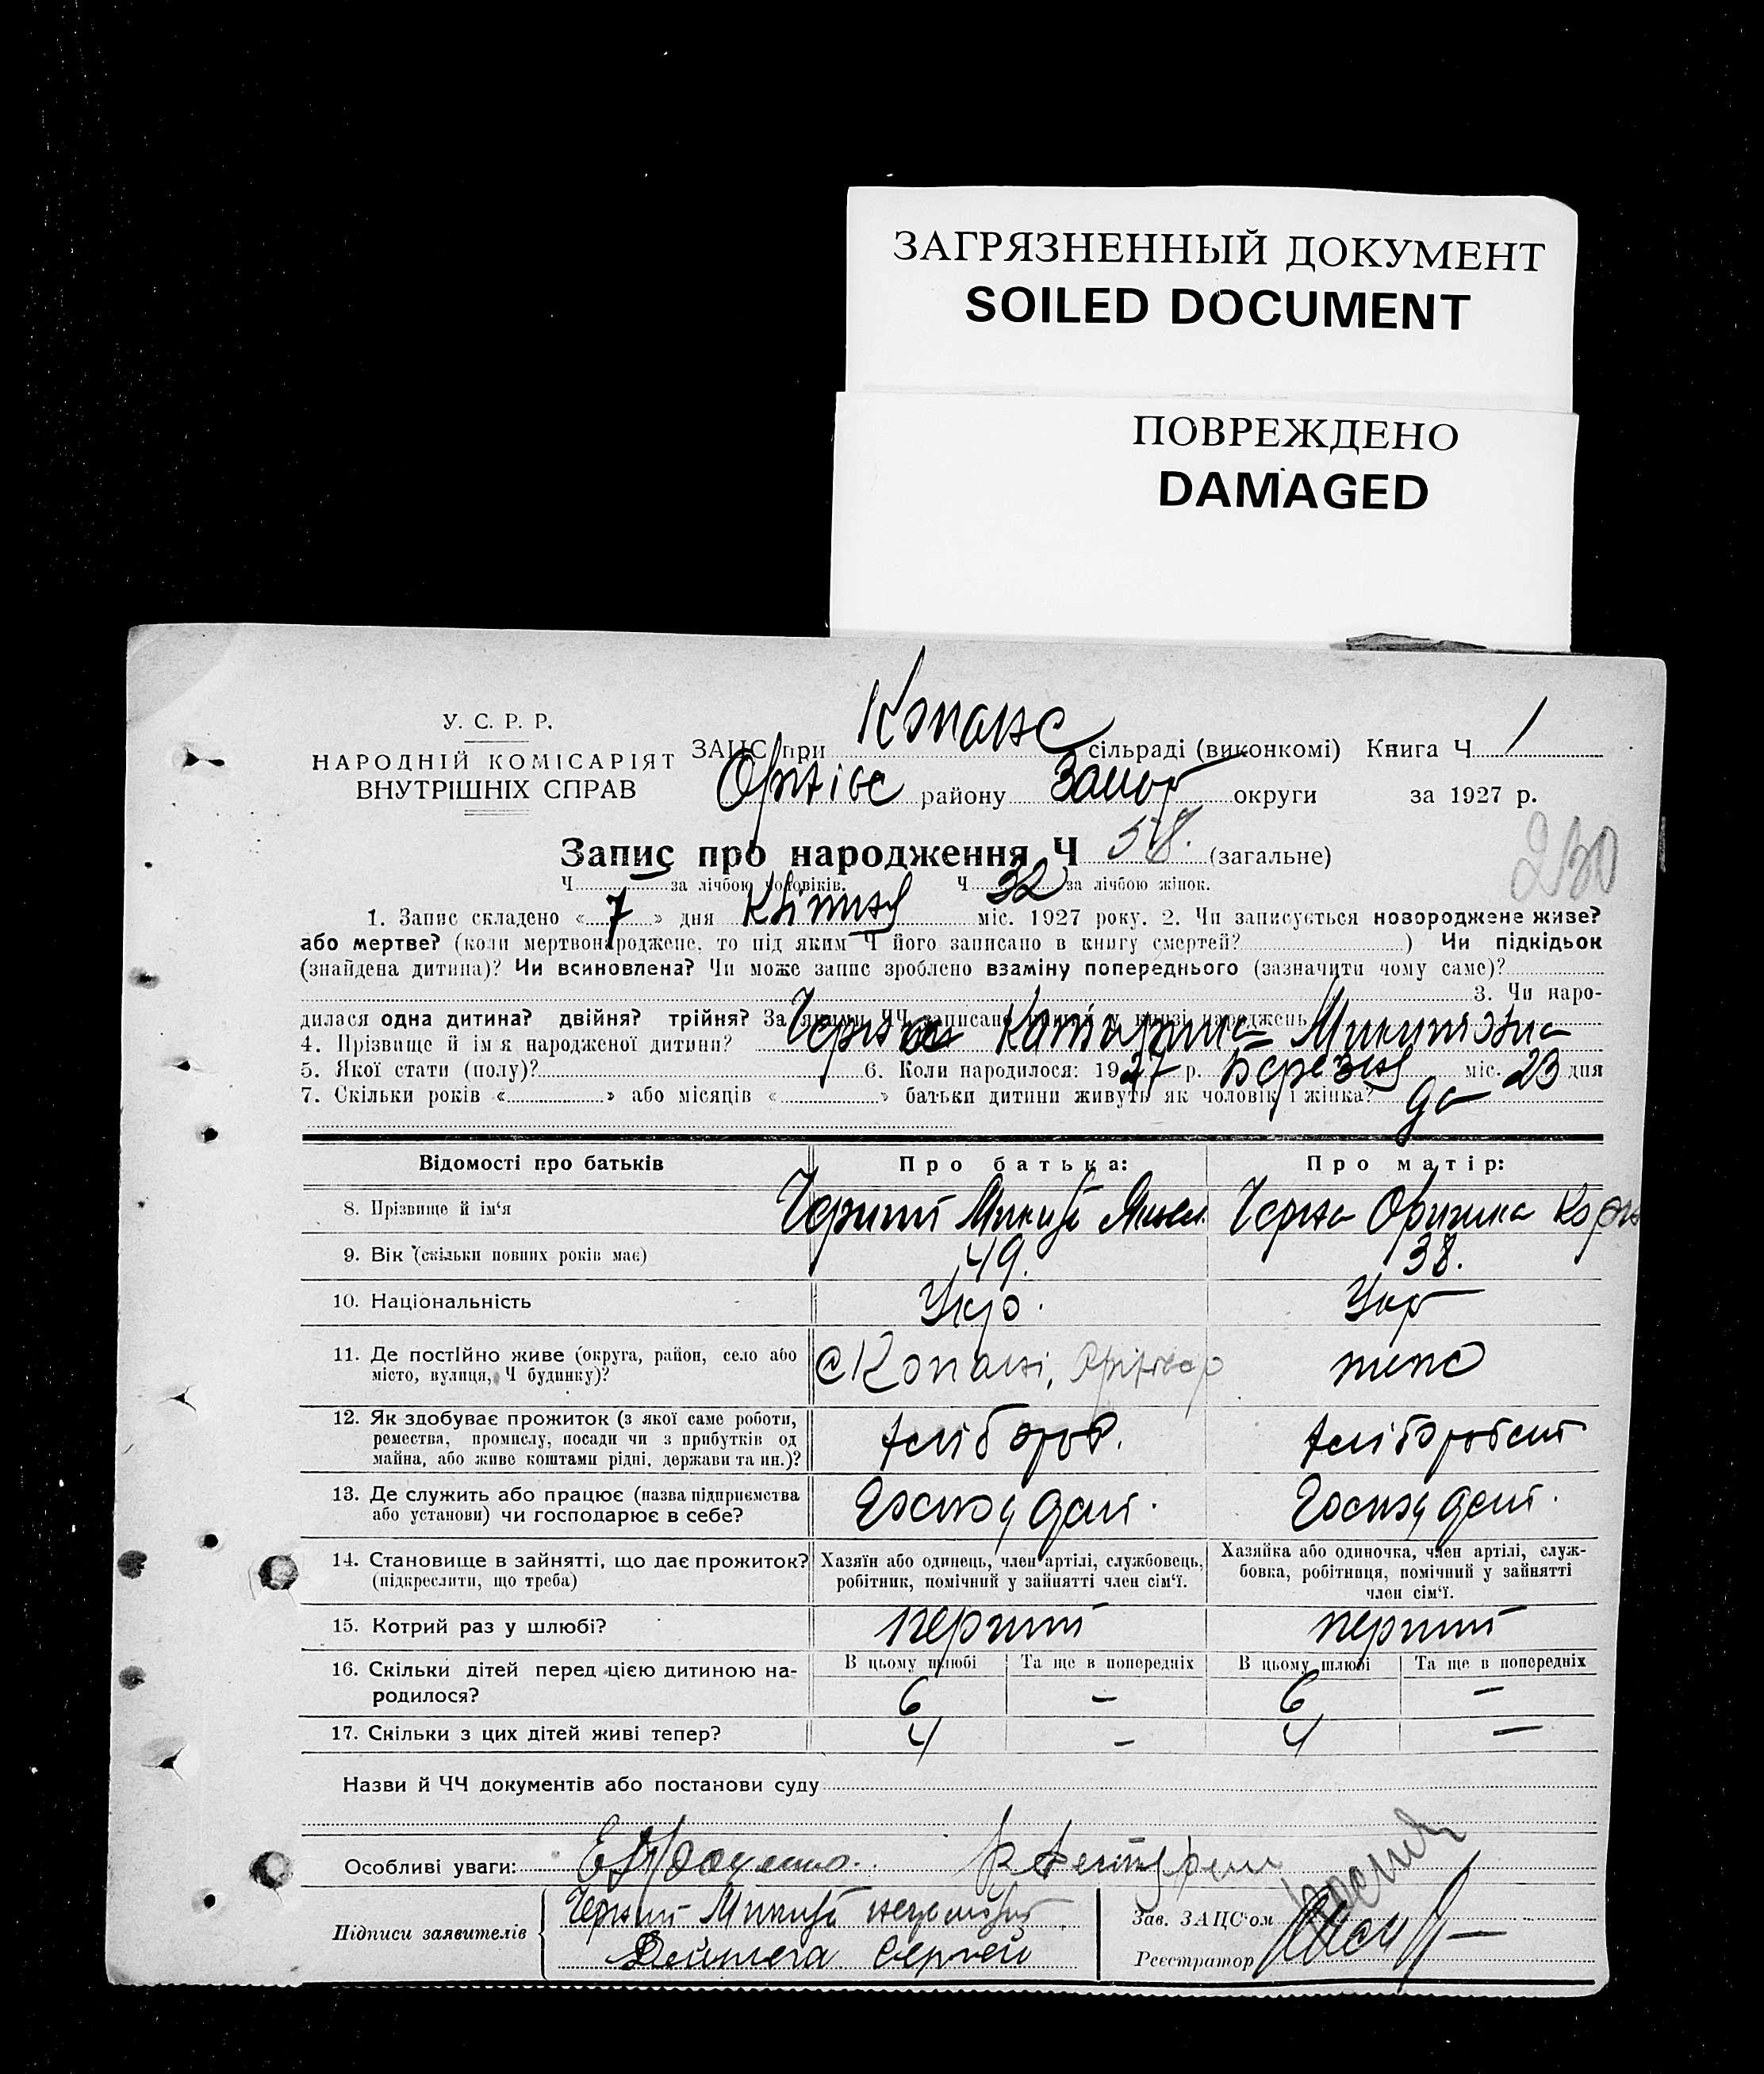 ЗАГРЯЗНЕННЫЙ ДОКУМЕНТ
SOILED DOCUMENT
ПОВРЕЖДЕНО
DAMAGED
У. С. Р. Р.
НАРОДНІЙ КОМІСАРІЯТ
ВНУТРІШНІХ СПРАВ
ЗАЦС при Копанс сільраді (виконкомі) Книга Ч 1
Оріхівс району Запор округи за 1927 р.
Запис про народження Ч 58. (загальне)
230
Ч за лічбою чоловіків. Ч 32 за лічбою жінок.
1. Запис складено « 7 » дня Квітня міс. 1927 року. 2. Чи записується новороджене живе?
або мертве? (коли мертвонароджене, то під яким Ч його записано в книгу смертей? ) Чи підкідьок
(знайдена дитина)? Чи всиновлена? Чи може запис зроблено взаміну попереднього (зазначити чому саме)?
3. Чи наро-
дилася одна дитина? двійня? трійня? За якими ЧЧ записано в книзі народжень
4. Прізвище й ім'я народженої дитини? Чорна Катирина Микитовна
5. Якої стати (полу)? 6. Коли народилося: 1927 р. Березня міс. 23 дня
7. Скільки років « » або місяців « » батьки дитини живуть як чоловік і жінка? да
Відомості про батьків Про батька: Про матір:
8. Прізвище й ім'я Чорний Микита Чорна Оришка
9. Вік (скільки повних років має) 49. 38.
10. Національність Укр. Укр
11. Де постійно живе (округа, район, село або
місто, вулиця, Ч будинку)? с Копані, Оріхівс р тепс
12. Як здобуває прожиток (з якої саме роботи,
ремества, промислу, посади чи з прибутків од
майна, або живе коштами рідні, держави та ин.)? хліброб. хлібороб
13. Де служить або працює (назва підприємства
або установи) чи господарює в себе?
14. Становище в зайнятті, що дає прожиток?
(підкреслити, що треба)
Хазяїн або одинець, член артілі, службовець,
робітник, помічний у зайнятті член сім'ї.
Хазяйка або одиночка, член артілі, служ-
бовка, робітниця, помічний у зайнятті
член сім'ї.
15. Котрий раз у шлюбі? перший перший
16. Скільки дітей перед цією дитиною на-
родилося?
В цьому шлюбі Та ще в попередніх В цьому шлюбі Та ще в попередніх
6 — 6 —
17. Скільки з цих дітей живі тепер? 4 — 4 —
Назви й ЧЧ документів або постанови суду
Особливі уваги:
Підписи заявителів Чорний Микита
Сергей
Зав. ЗАЦС'ом
Реєстратор